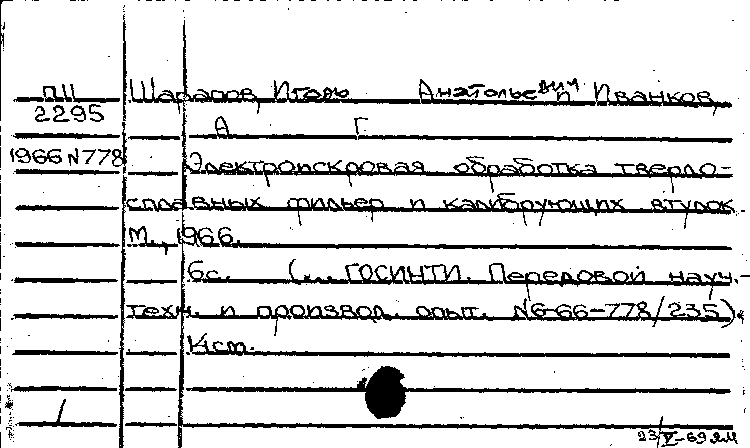 ПЦ Шарапов, Игорь Анатольевич и Иванков,
2295 А Г.
1966 N778 Электроискровая обработка твердо-
сплавных фильер и калибрующих втулок.
М., 1966.
6с. (... ГОСИНТИ. Передовой науч.-
техн. и производ. опыт. N6-66-778/235).
14см.
23/V-69